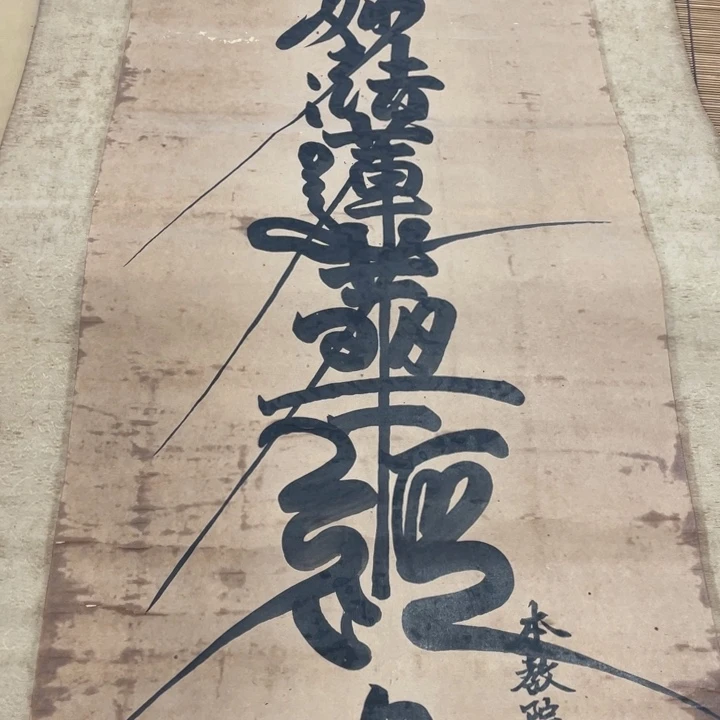 妙法蓮華經
本教院